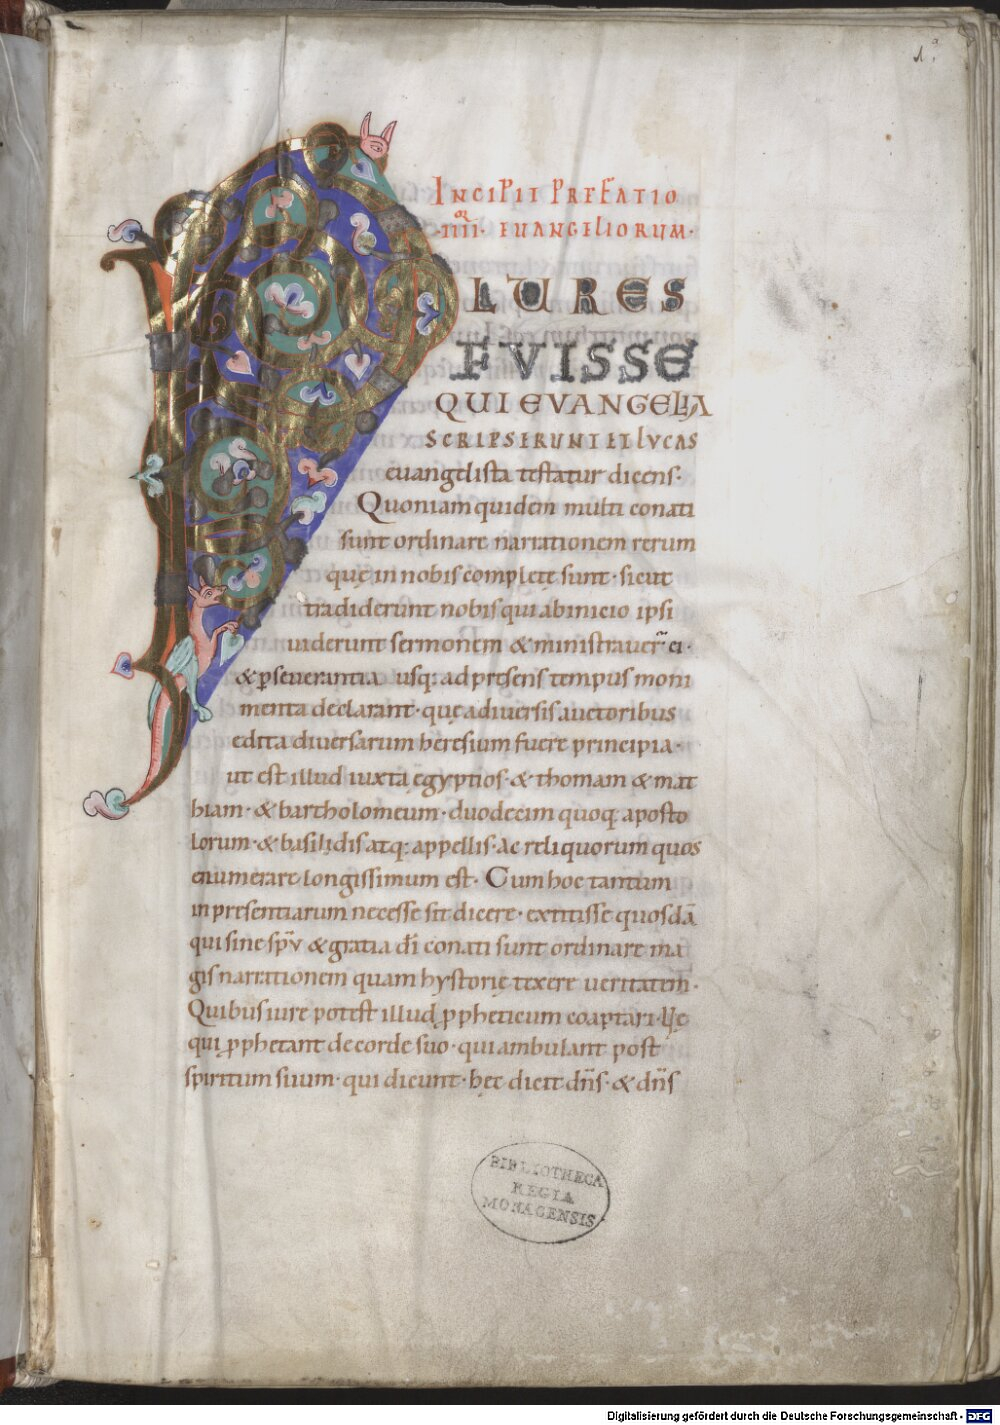 1.a
INCIPIT PREFATIO
·IIIIor· EUANGELIORUM·
PLURES
FVISSE
QUI EVANGELIA
SCRIPSERUNT ET LVCAS
euangelista testatur dicens·
Quoniam quidem multi conati
sunt ordinare narrationem rerum
quę in nobis completę sunt· sicut
tradiderunt nobis qui ab inicio ipsi
uiderunt sermonem & ministrauer̄ ei·
& ꝑseuerantia usq: ad presens tempus moni
menta declarant· quę a diuersis auctoribus
edita diuersarum heresium fuere principia·
ut est illud iuxta ęgyptios· & thomam & mat
hiam· & bartholomeum· duodecim quoq: aposto
lorum· & basilidis atq: appellis· ac reliquorum quos
enumerare longissimum est· Cum hoc tantum
in presentiarum necesse sit dicere· extitisse quosdā
qui sine spū & gratia dī conati sunt ordinare ma
gis narrationem quam hystorię texere ueritatem·
Quibus iure potest illud ꝓpheticum coaptari·
qui ꝓphetant de corde suo· qui ambulant post
spiritum suum· qui dicunt· hęc dicit dn̄s· & dn̄s
BIBLIOTHECA
REGIA
MONACENSIS
Digitalisierung gefördert durch die Deutsche Forschungsgemeinschaft - DFG